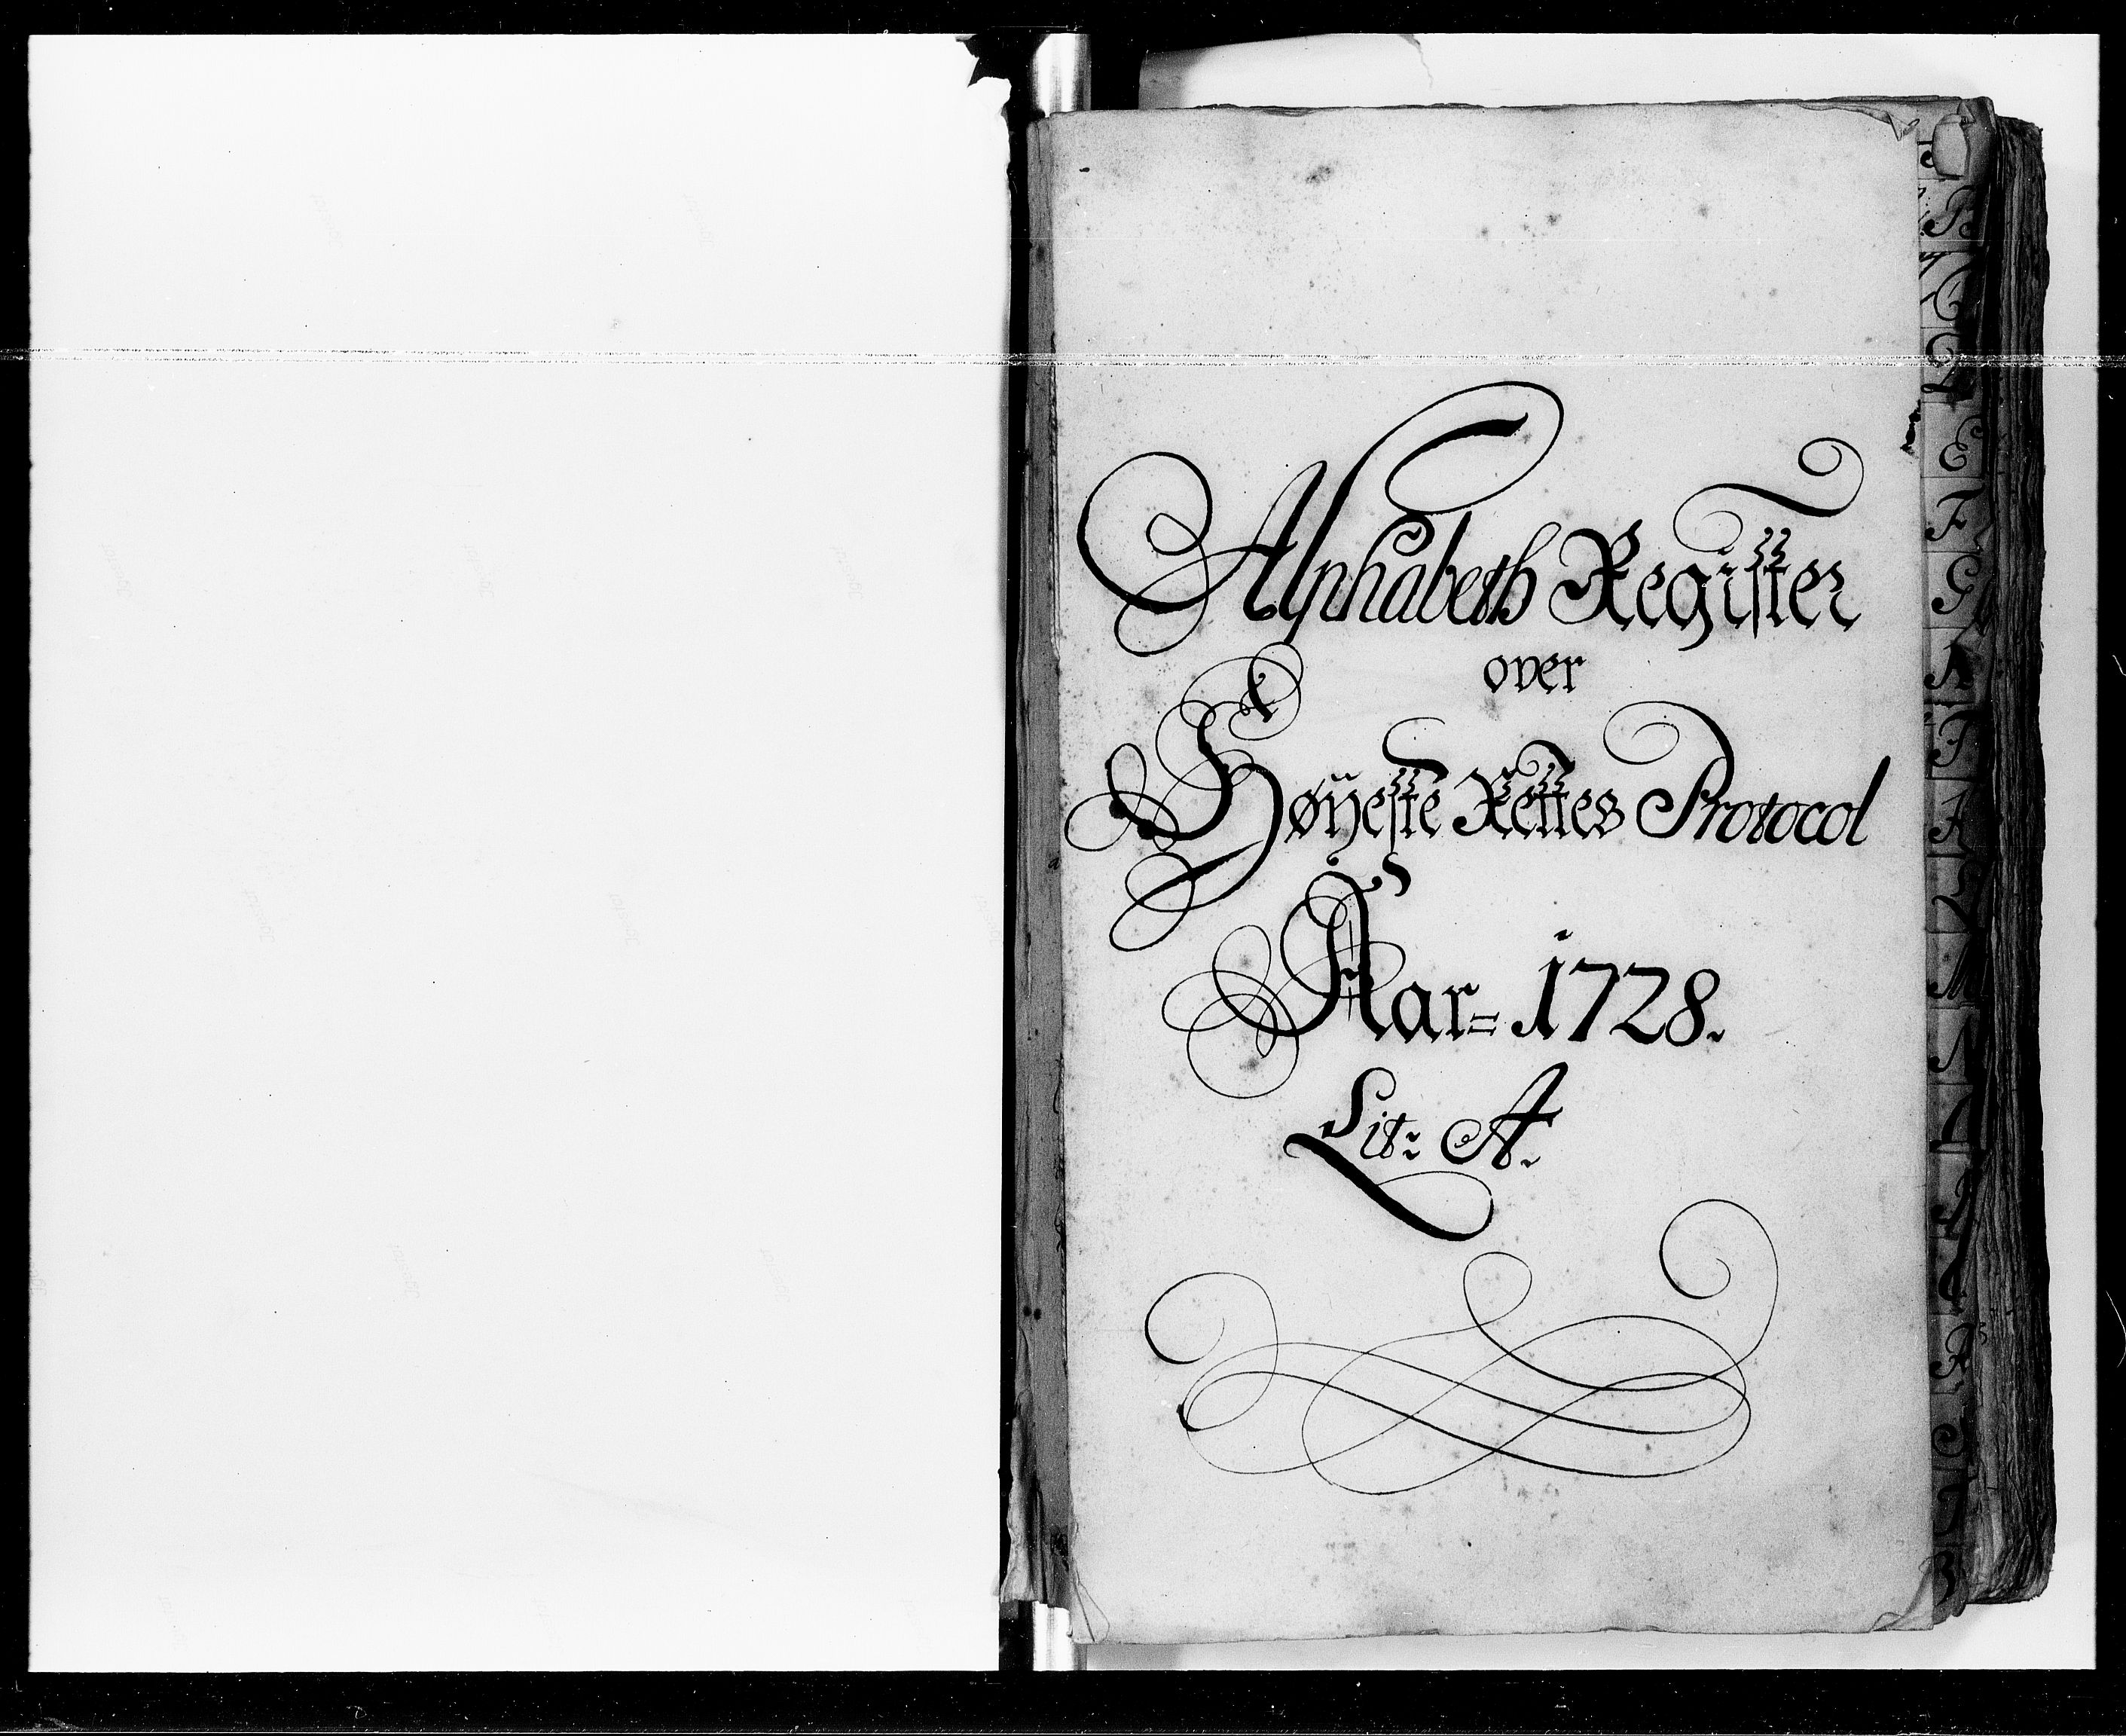 Alphabeth Register
over
Høÿeste Rettes Protocol
Aar= 1728.
Lit: A.